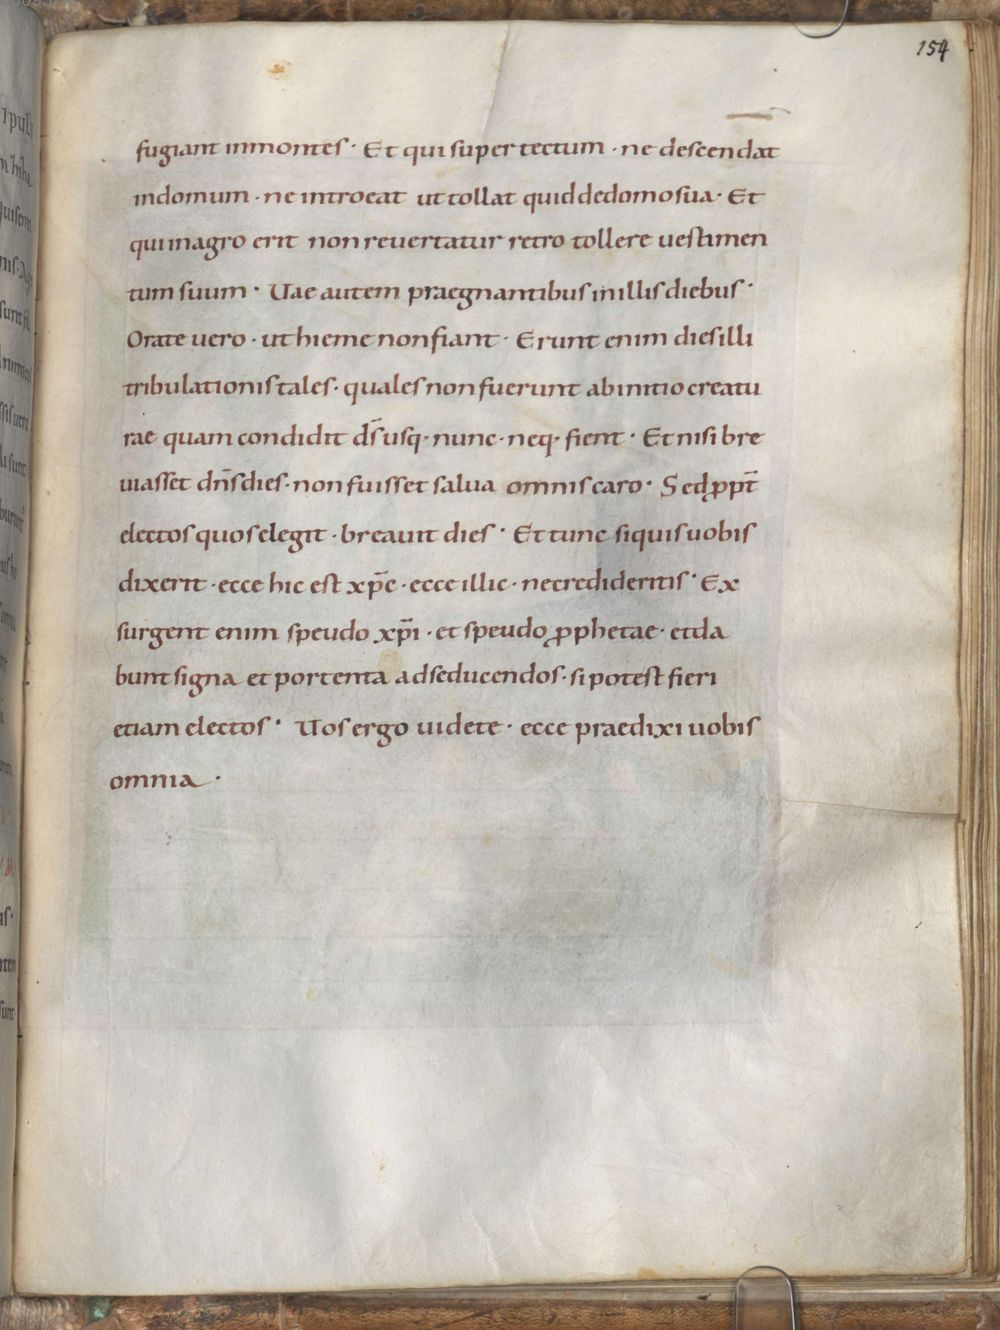 154
fugiant inmontes · Et qui super tectum · ne descendat
indomum · ne introeat ut tollat quid dedomo sua · Et
qui inagro erit non revertatur retro tollere uestimen
tum suum · Uae autem praegnantibus inillis diebus ·
Orate uero · ut hieme non fiant · Erunt enim dies illi
tribulationis tales · quales non fuerunt abinitio creatu
rae quam condidit ds̄ usq· nunc · neq· fient · Et nisi bre
uiasset dn̄s dies · non fuisset salua omnis caro · Sed ꝓpt̄
electos quos elegit · breauit dies · Et tunc siquis uobis
dixerit · ecce hic est xp̄c · ecce illic · necredideritis · Ex
surgent enim speudo xp̄i · et speudo ꝓphetae · etda
bunt signa et portenta adseducendos · si potest fieri
etiam electos · Uos ergo uidete · ecce praedixi uobis
omnia ·